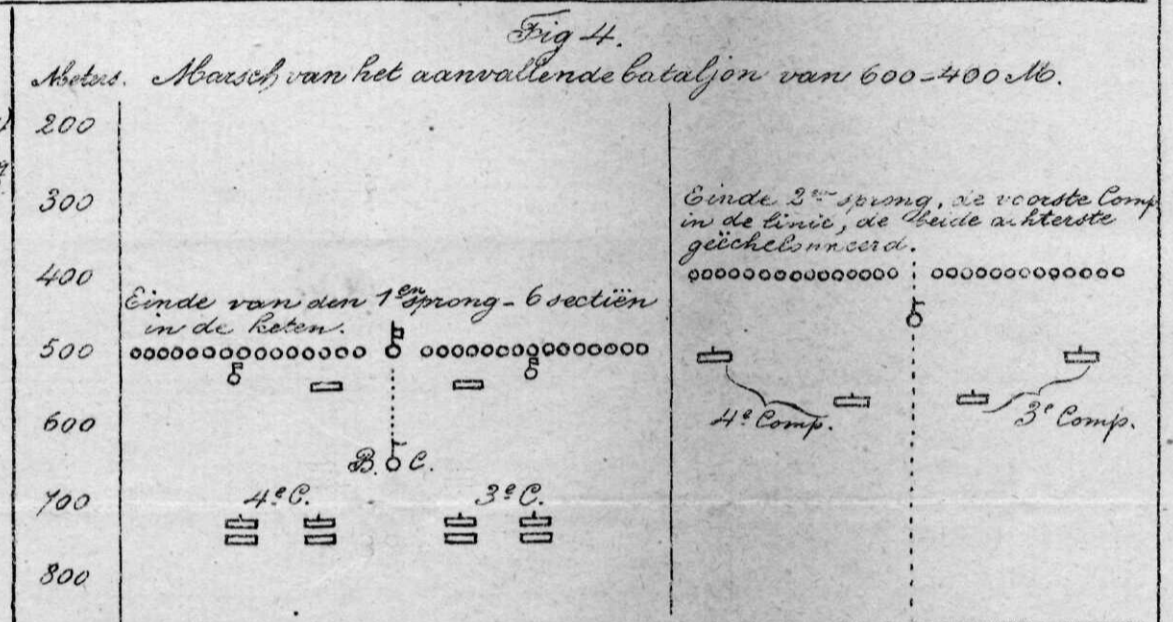 Fig 4.
Meters. Marsch van het aanvallende bataljon van 600-400 M.
200
300
400
500
600
700
800
Einde van den 1en sprong - 6 sectiën
in de keten.
B. C.
4e C. 3e C.
Einde 2en sprong, de voorste Comp
in de linie, de beide achterste
geëchelonneerd.
4e Comp. 3e Comp.